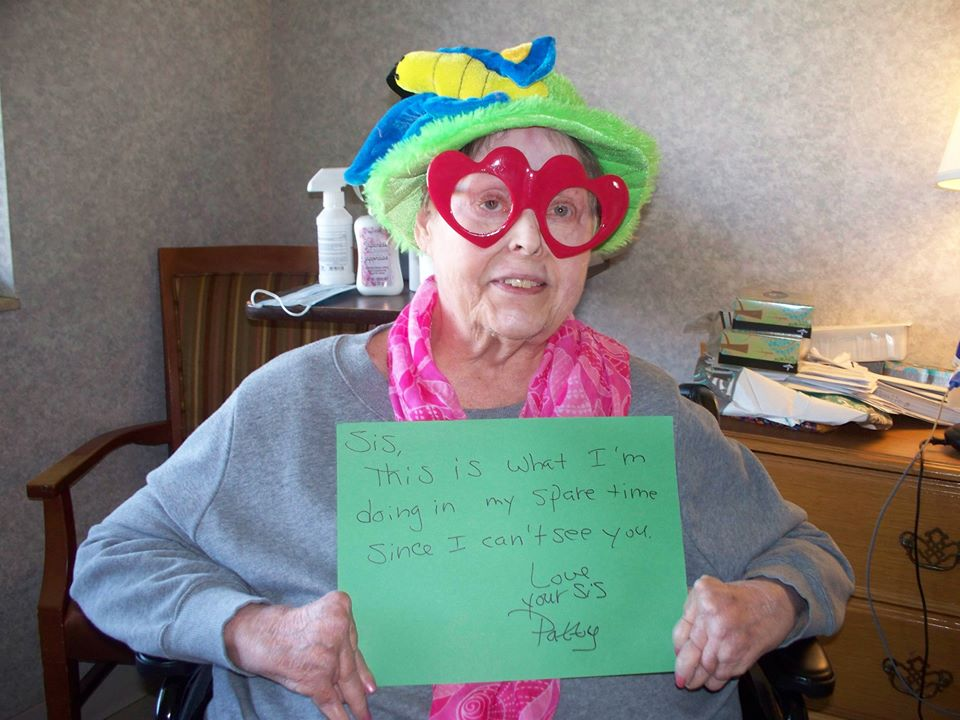 Sis,
This is what I'm
doing in my spare time
since I can't see you.
Love
your sis
Patty
Japanese